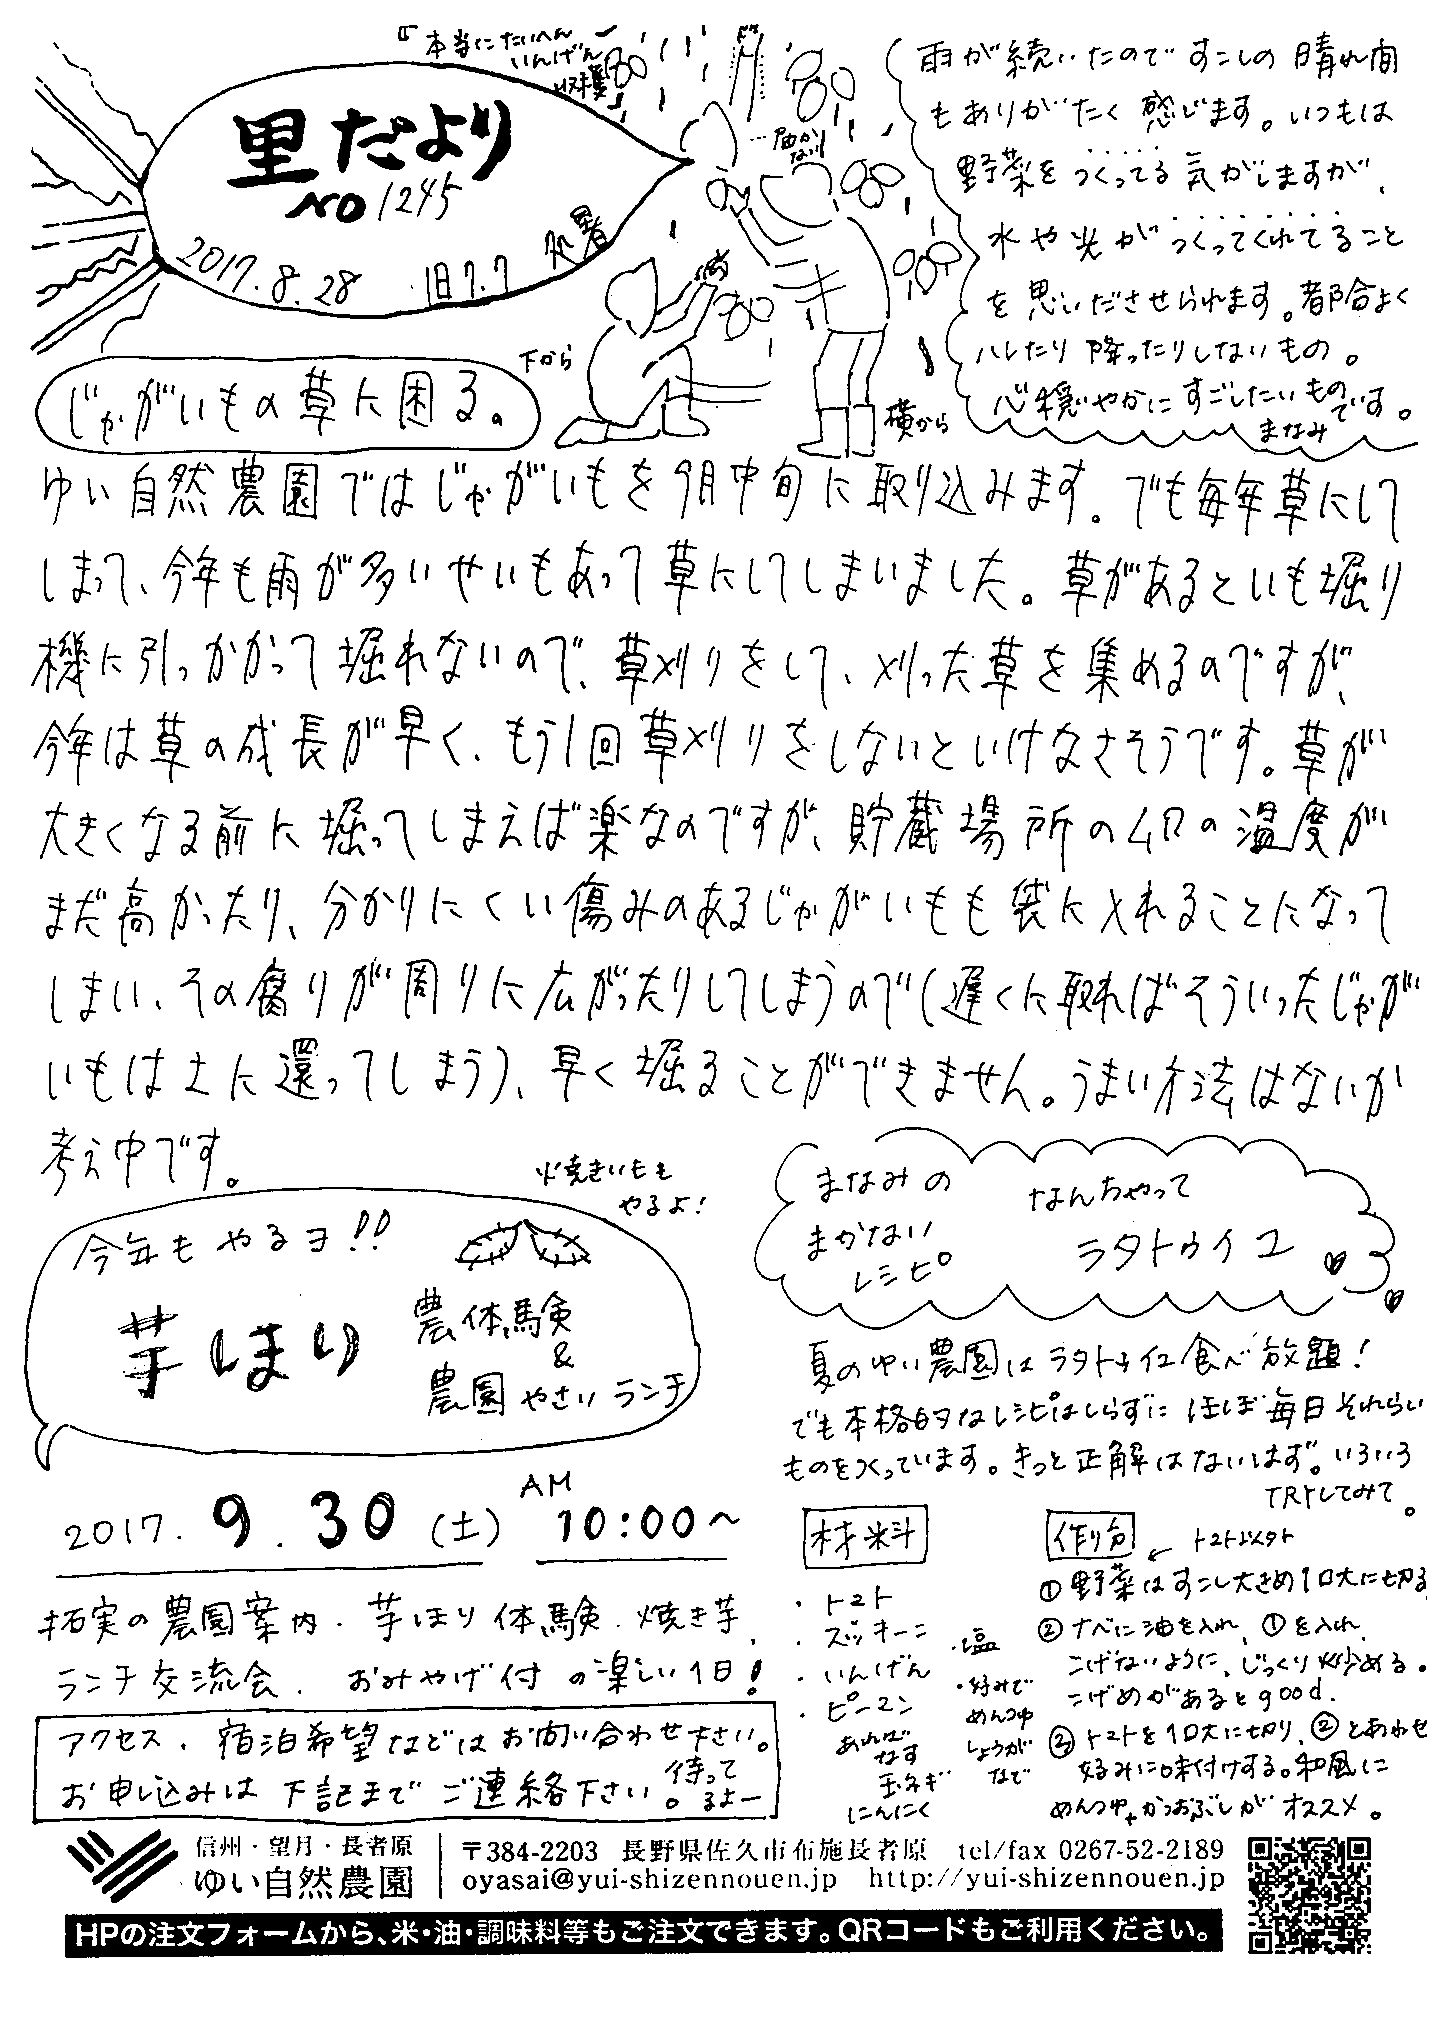 『本当にたいへん
いんげん
収穫』
里だより
NO 1245
2017.8.28 旧7.7 処暑
…届かない
下から
横から
雨が続いたのですこしの晴れ間
もありがたく感じます。いつもは
野菜をつくってる気がしますが、
水や光がつくってくれてること
を思いださせられます。都合よく
ハレたり降ったりしないもの。
心穏やかにすごしたいもの
です。
まなみ
じゃがいもの草に困る。
ゆい自然農園ではじゃがいもを9月中旬に取り込みます。でも毎年草にして
しまって、今年も雨が多いせいもあって草にしてしまいました。草があるといも堀り
機に引っかかって堀れないので、草刈りをして、刈った草を集めるのですが、
今年は草の成長が早く、もう1回草刈りをしないといけなさそうです。草が
大きくなる前に堀ってしまえば楽なのですが、貯蔵場所のムロの温度が
まだ高かったり、分かりにくい傷みのあるじゃがいもも袋に入れることになって
しまい、その腐りが周りに広がったりしてしまうので(遅くに取ればそういったじゃが
いもは土に還ってしまう)、早く堀ることができません。うまい方法はないか
考え中です。
焼きいもも
やるよ!
今年もやるヨ!!
芋ほり
農体験
&
農園やさいランチ
2017. 9. 30 (土) AM 10:00〜
拓実の農園案内、芋ほり体験、焼き芋、
ランチ交流会、おみやげ付の楽しい1日!
アクセス、宿泊希望などはお問い合わせ下さい。
お申し込みは下記までご連絡下さい。待って
るよー
まなみの
まかない
レシピ
なんちゃって
ラタトゥイユ
夏のゆい農園はラタトゥイユ食べ放題!
でも本格的なレシピはしらずにほぼ毎日それらしい
ものをつくっています。きっと正解はないはず。いろいろ
TRYしてみて。
材料
・トマト
・ズッキーニ
・いんげん
・ピーマン
あれば
なす
玉ネギ
にんにく
・塩
・好みで
めんつゆ
しょうが
など
作り方
トマト以外
①野菜はすこし大きめ1口大に切る
②ナベに油を入れ、①を入れ、
こげないように、じっくり炒める。
こげめがあるとgood.
③トマトを1口大に切り、②とあわせ
好みに味付けする。和風に
めんつゆ+かつおぶしがオススメ。
信州・望月・長者原
ゆい自然農園
〒384-2203 長野県佐久市布施長者原 tel/fax 0267-52-2189
oyasai@yui-shizennouen.jp http://yui-shizennouen.jp
HPの注文フォームから、米・油・調味料等もご注文できます。QRコードもご利用ください。